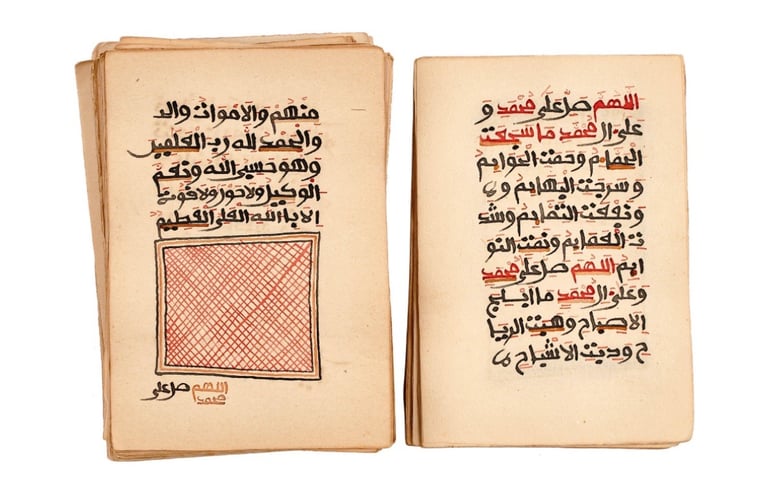 اللهم صل على محمد و
على ال محمد ما سجعت
الحمايم وحمت الحوايم
وسرحت البهايم
ونفعت التمايم وشد
ت العمايم ونمت النو
ايم اللهم صل على محمد
وعلى ال محمد ما ابلج
الاصباح وهبت الريا
ح ودبت الاشباح
منهم والاموات وال
والحمد لله رب العلمين
وهو حسبي الله ونعم
الوكيل ولا حول ولا قوة
الا بالله العلي العظيم
اللهم صل على
محمد